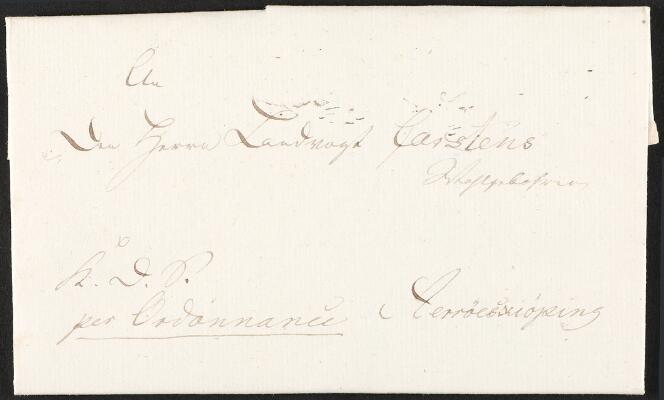 An
Den Herrn Landvogt Carstens
Wohlgebohren
K. D. S.
per Ordonnance Aerröeskiöping